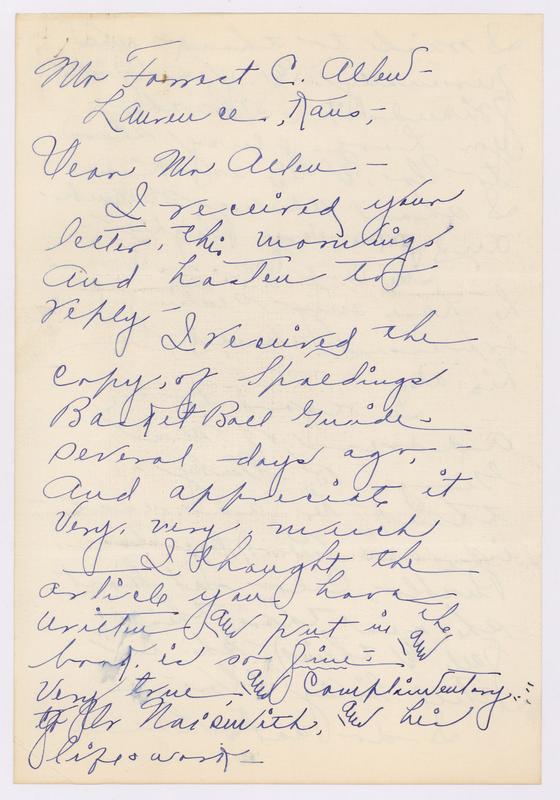 Mr Forrest C. Allen -
Laurence, Kans,-
Dear Mr Allen -
I received your
letter, this mornings
and hasten to
reply -
I received the
copy, of Spaldings
Basket Ball Guide -
several days ago, -
and appreciate it
very, very, much
I thought the
article you have
written and put in the
book, is so fine -
and
very true, and Complimentary
to Dr Naismith, and his
lifes work -